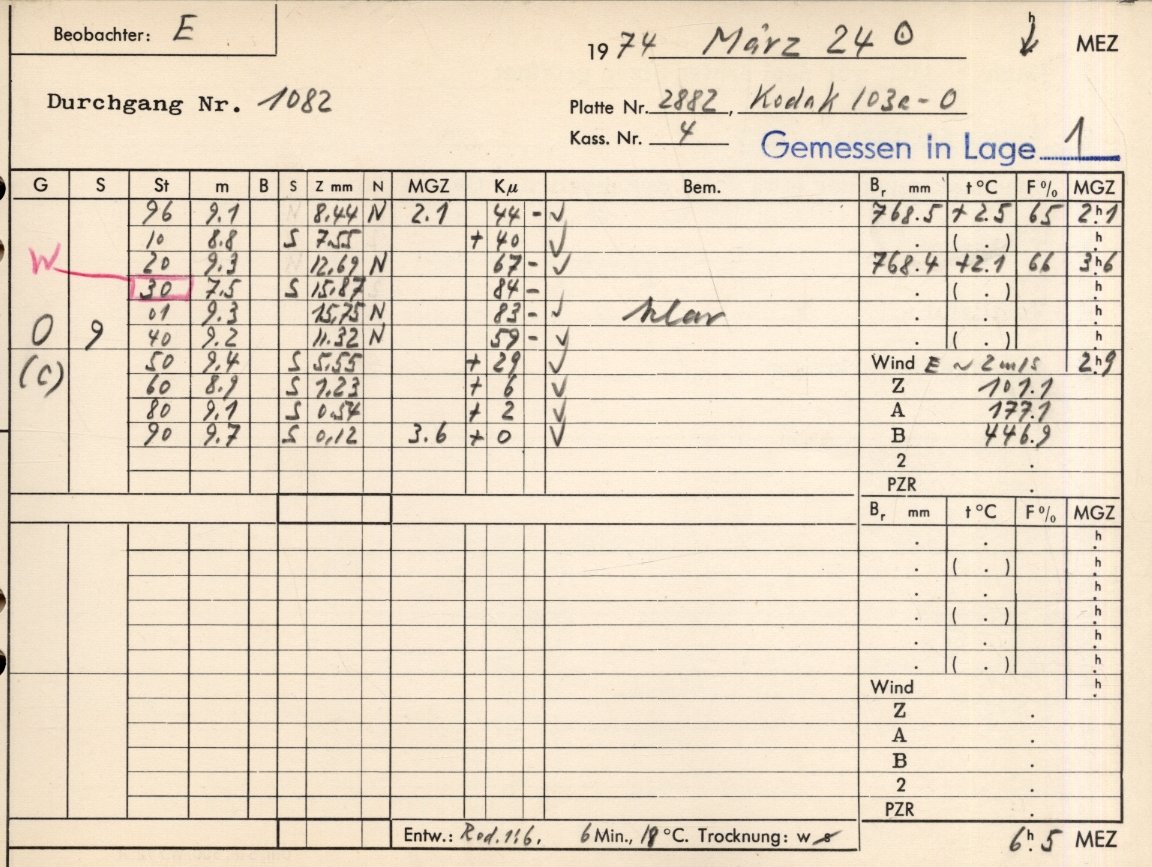 Beobachter: E
1974 März 24 0 h MEZ
Durchgang Nr. 1082
Platte Nr. 2882, Kodak 103a-0
Kass. Nr. 4
Gemessen in Lage 1
G S St m B S Z mm N MGZ Kμ Bem. Br mm t °C F % MGZ
96 9.1 8.44 N 2.1 44 - ✓ 768.5 +2.5 65 2h.1
10 8.8 S 7.55 + 40 ✓ . ( . ) h
W 20 9.3 12.69 N 67 - ✓ 768.4 +2.1 66 3h.6
30 7.5 S 15.87 84 - . ( . ) h
01 9.3 15.75 N 83 - ✓ klar . . h
O 9 40 9.2 11.32 N 59 - ✓ . ( . ) h
(c) 50 9.4 S 5.55 + 29 ✓ Wind E ~ 2 m/s 2h.9
60 8.9 S 1.23 + 6 ✓ Z 101.1
80 9.1 S 0.54 + 2 ✓ A 177.1
90 9.7 S 0.12 3.6 + 0 ✓ B 446.9
2 .
PZR .
Br mm t °C F % MGZ
. . h
. ( . ) h
. . h
. ( . ) h
. . h
. ( . ) h
Wind h
Z .
A .
B .
2 .
PZR .
Entw.: Rod. 1:6, 6 Min., 18 °C. Trocknung: w s
6h.5 MEZ